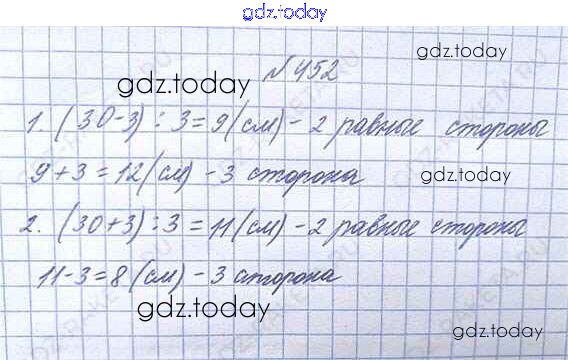 gdz.today
№452
gdz.today
gdz.today
1. (30-3) : 3 = 9 (см) - 2 равные стороны
9 + 3 = 12 (см) - 3 сторона
gdz.today
2. (30+3) : 3 = 11 (см) - 2 равные стороны
11-3 = 8 (см) - 3 сторона
gdz.today
gdz.today